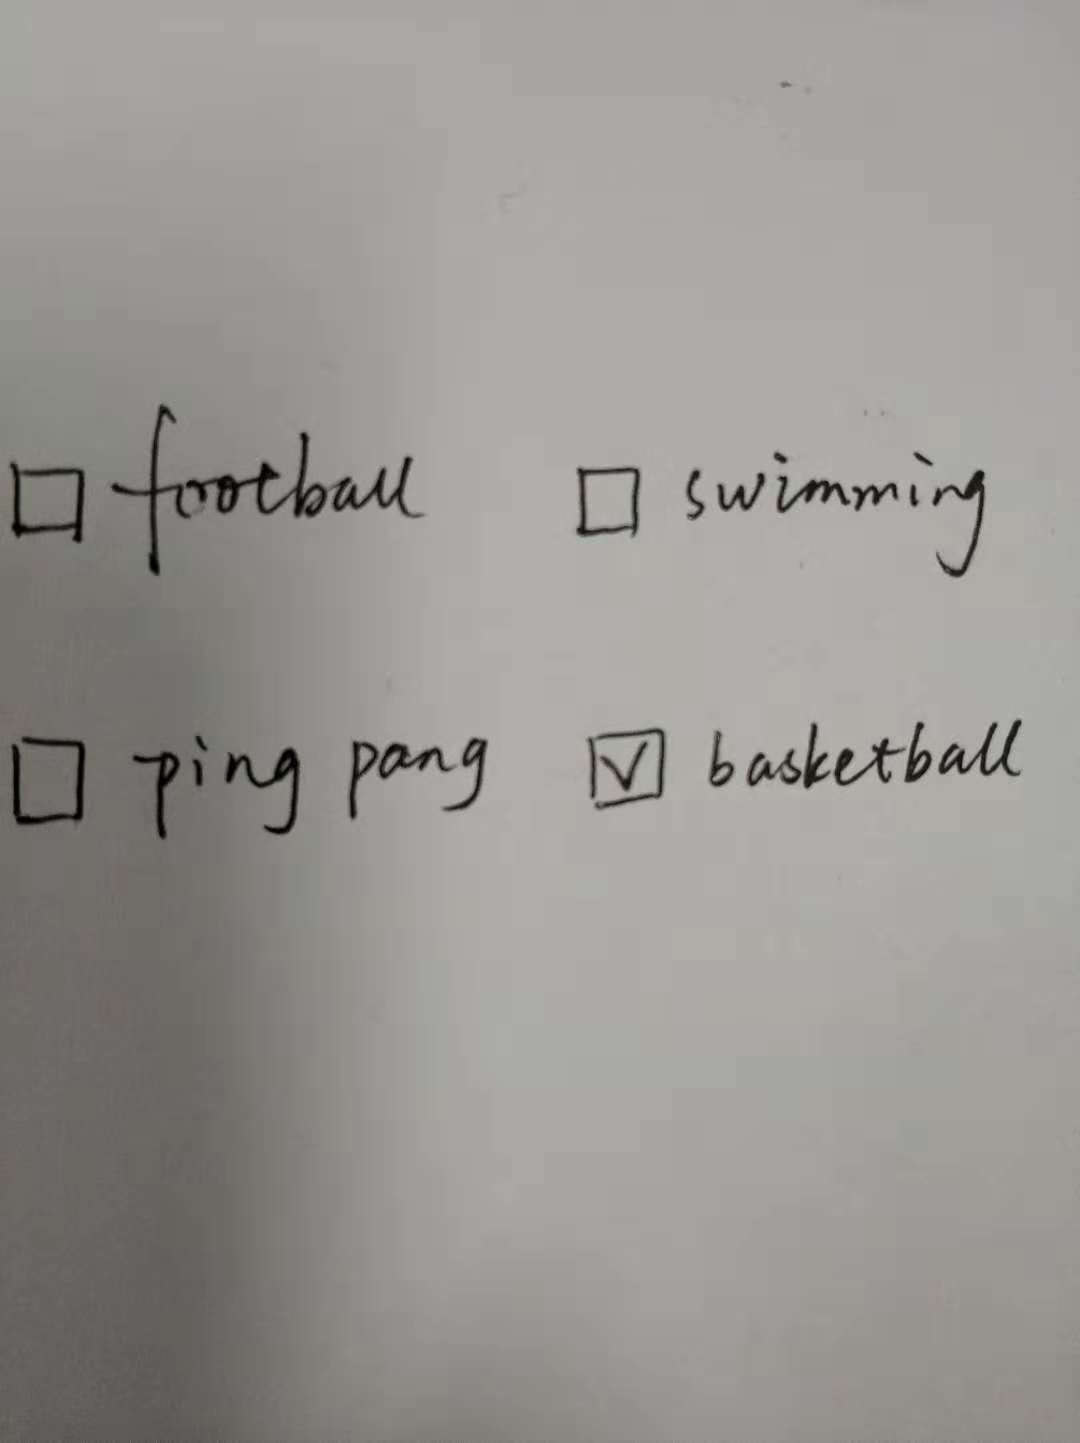 ☐ football ☐ swimming
☐ ping pang ☑ basketball